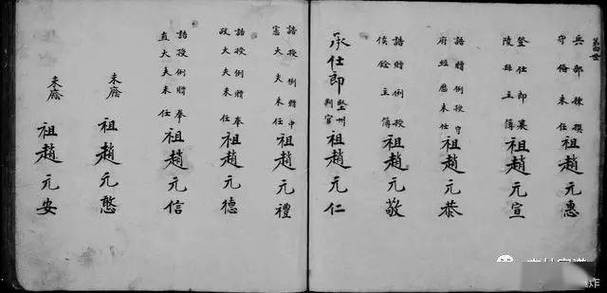 四世
兵部揀撰
守備未任
祖趙元惠
登仕郎襄
陵縣主簿
祖趙元宣
誥贈例授守
府經歷未任
祖趙元恭
誥贈例授
候銓主簿
祖趙元敬
承仕郎
堅州
判官
祖趙元仁
誥授例贈中
憲大夫未任
祖趙元禮
誥授例贈奉
政大夫未任
祖趙元德
誥授例贈奉
直大夫未任
祖趙元信
未廕
祖趙元憨
未廕
祖趙元安